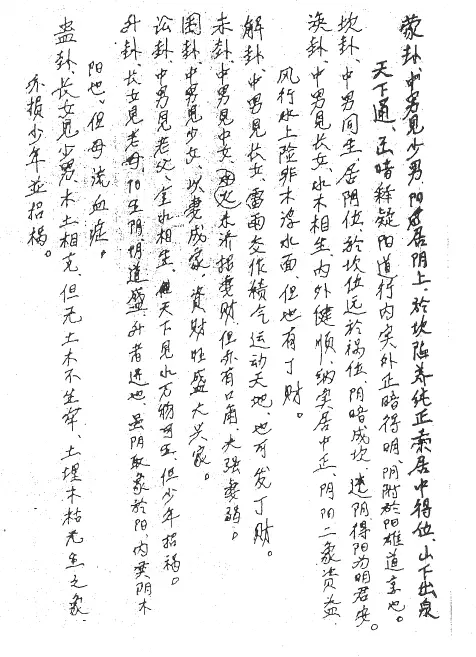 蒙卦、中男見少男、阳居阴上、於坎险养纯正索居中得位、山下出泉
天下通、正暗释疑阳道行内实外正暗得明、阴附於阳雄道亨也。
坎卦、中男同生居阴位、於坎位远於祸位、阴暗成坎、逃阴得阳为明君安。
涣卦、中男見長女、水木相生、内外健順、纳实居中正、阴阳二象資益
风行水上险非木浮水面、但也有丁財。
解卦、中男見長女、雷雨交作積气运动天地、也可发丁財。
未卦、中男見中女、火水未济招妻財、但亦有口角、夫强妻弱。
困卦、中男見少女、以妻成家、資財旺盛大兴家。
讼卦、中男見老父、金水相生、但天下見水万物可生、但少年招禍。
升卦、長女見老母、阳生阴明道盛、升者进也、虽阴取象於阳、内实阴木
阳也、但母流血症。
蛊卦、長女見少男、木土相克、但无土木不生牢、土埋木枯无生之象、
亦損少年並招禍。